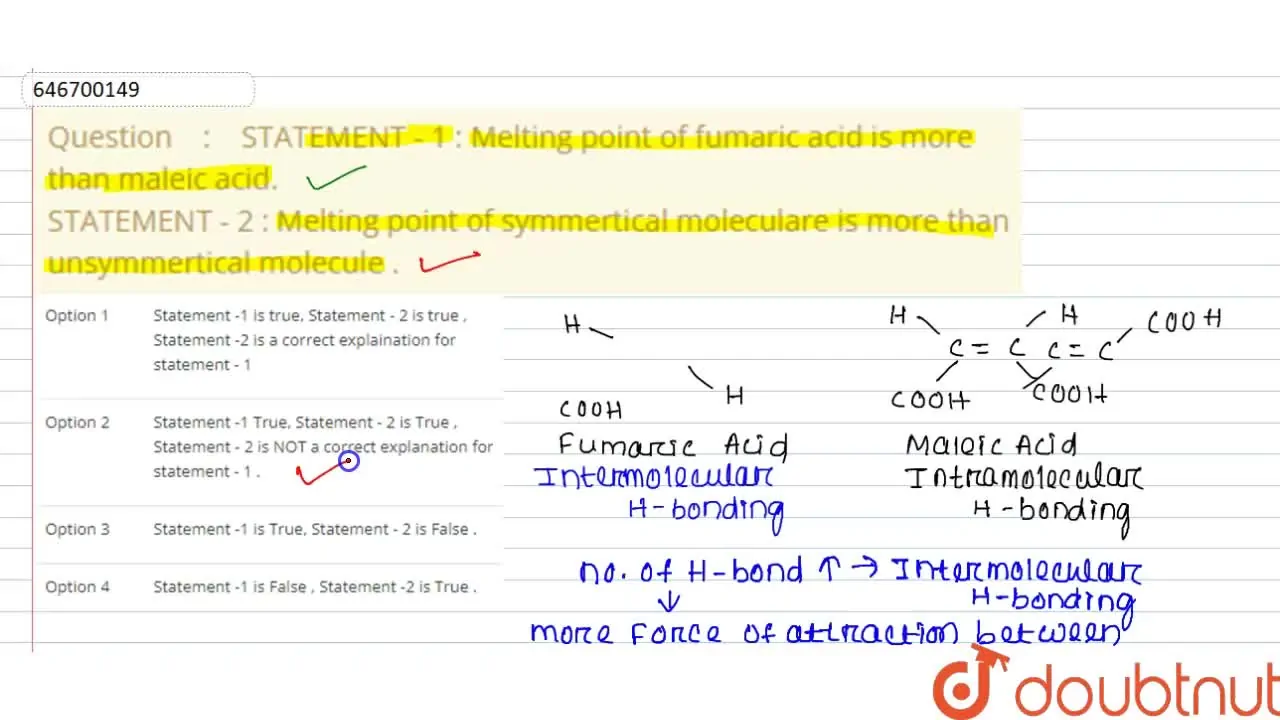 646700149
Question : STATEMENT - 1 : Melting point of fumaric acid is more
than maleic acid.
STATEMENT - 2 : Melting point of symmertical moleculare is more than
unsymmertical molecule .
Option 1 Statement -1 is true, Statement - 2 is true ,
Statement -2 is a correct explaination for
statement - 1
Option 2 Statement -1 True, Statement - 2 is True ,
Statement - 2 is NOT a correct explanation for
statement - 1 .
Option 3 Statement -1 is True, Statement - 2 is False .
Option 4 Statement -1 is False , Statement -2 is True .
H
H
COOH
Fumaric Acid
Intermolecular
H-bonding
H H COOH
C = C C = C
COOH COOH
Maleic Acid
Intramolecular
H-bonding
no. of H-bond ↑ → Intermolecular
↓ H-bonding
more force of attraction between
doubtnut